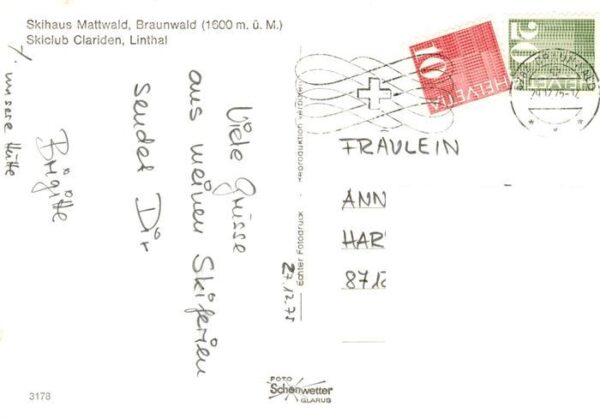 Skihaus Mattwald, Braunwald (1600 m. ü. M.)
Skiclub Clariden, Linthal
Viele Grüsse
aus meinen Skiferien
sendet Dir
Brigitte
unsere Hütte
27.12.75
Echter Fotodruck - Reproduktion verboten
10
HELVETIA
20
HELVETIA
FRÄULEIN
ANN
HAR
FOTO
Schönwetter
GLARUS
3178